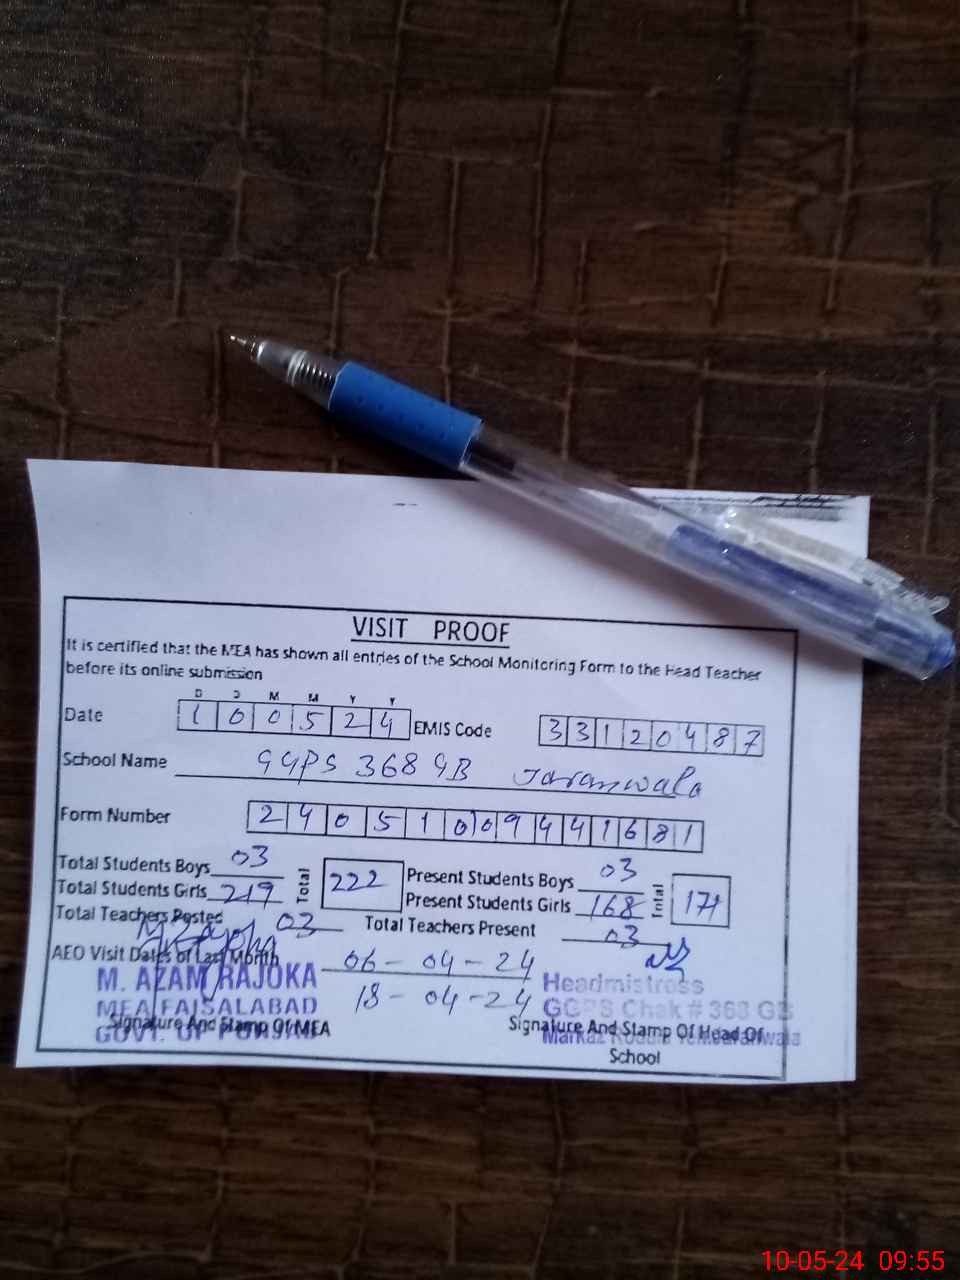 VISIT PROOF
It is certified that the MEA has shown all entries of the School Monitoring Form to the Head Teacher
before its online submission
D D M M Y Y
Date 1 0 0 5 2 4 EMIS Code 3 3 1 2 0 4 8 7
School Name GGPS 368 GB Jaranwala
Form Number 2 4 0 5 1 0 0 9 4 4 1 6 8 1
Total Students Boys 03 Total 222 Present Students Boys 03 Total 171
Total Students Girls 219 Present Students Girls 168
Total Teachers Posted 03 Total Teachers Present 03
AEO Visit Dates of Last Month 06 - 04 - 24
18 - 04 - 24
M. AZAM RAJOKA
MEA FAISALABAD
GOVT. OF PUNJAB
Signature And Stamp Of MEA
Headmistress
GGPS Chak # 368 GB
Markaz
Signature And Stamp Of Head Of
School
10-05-24 09:55